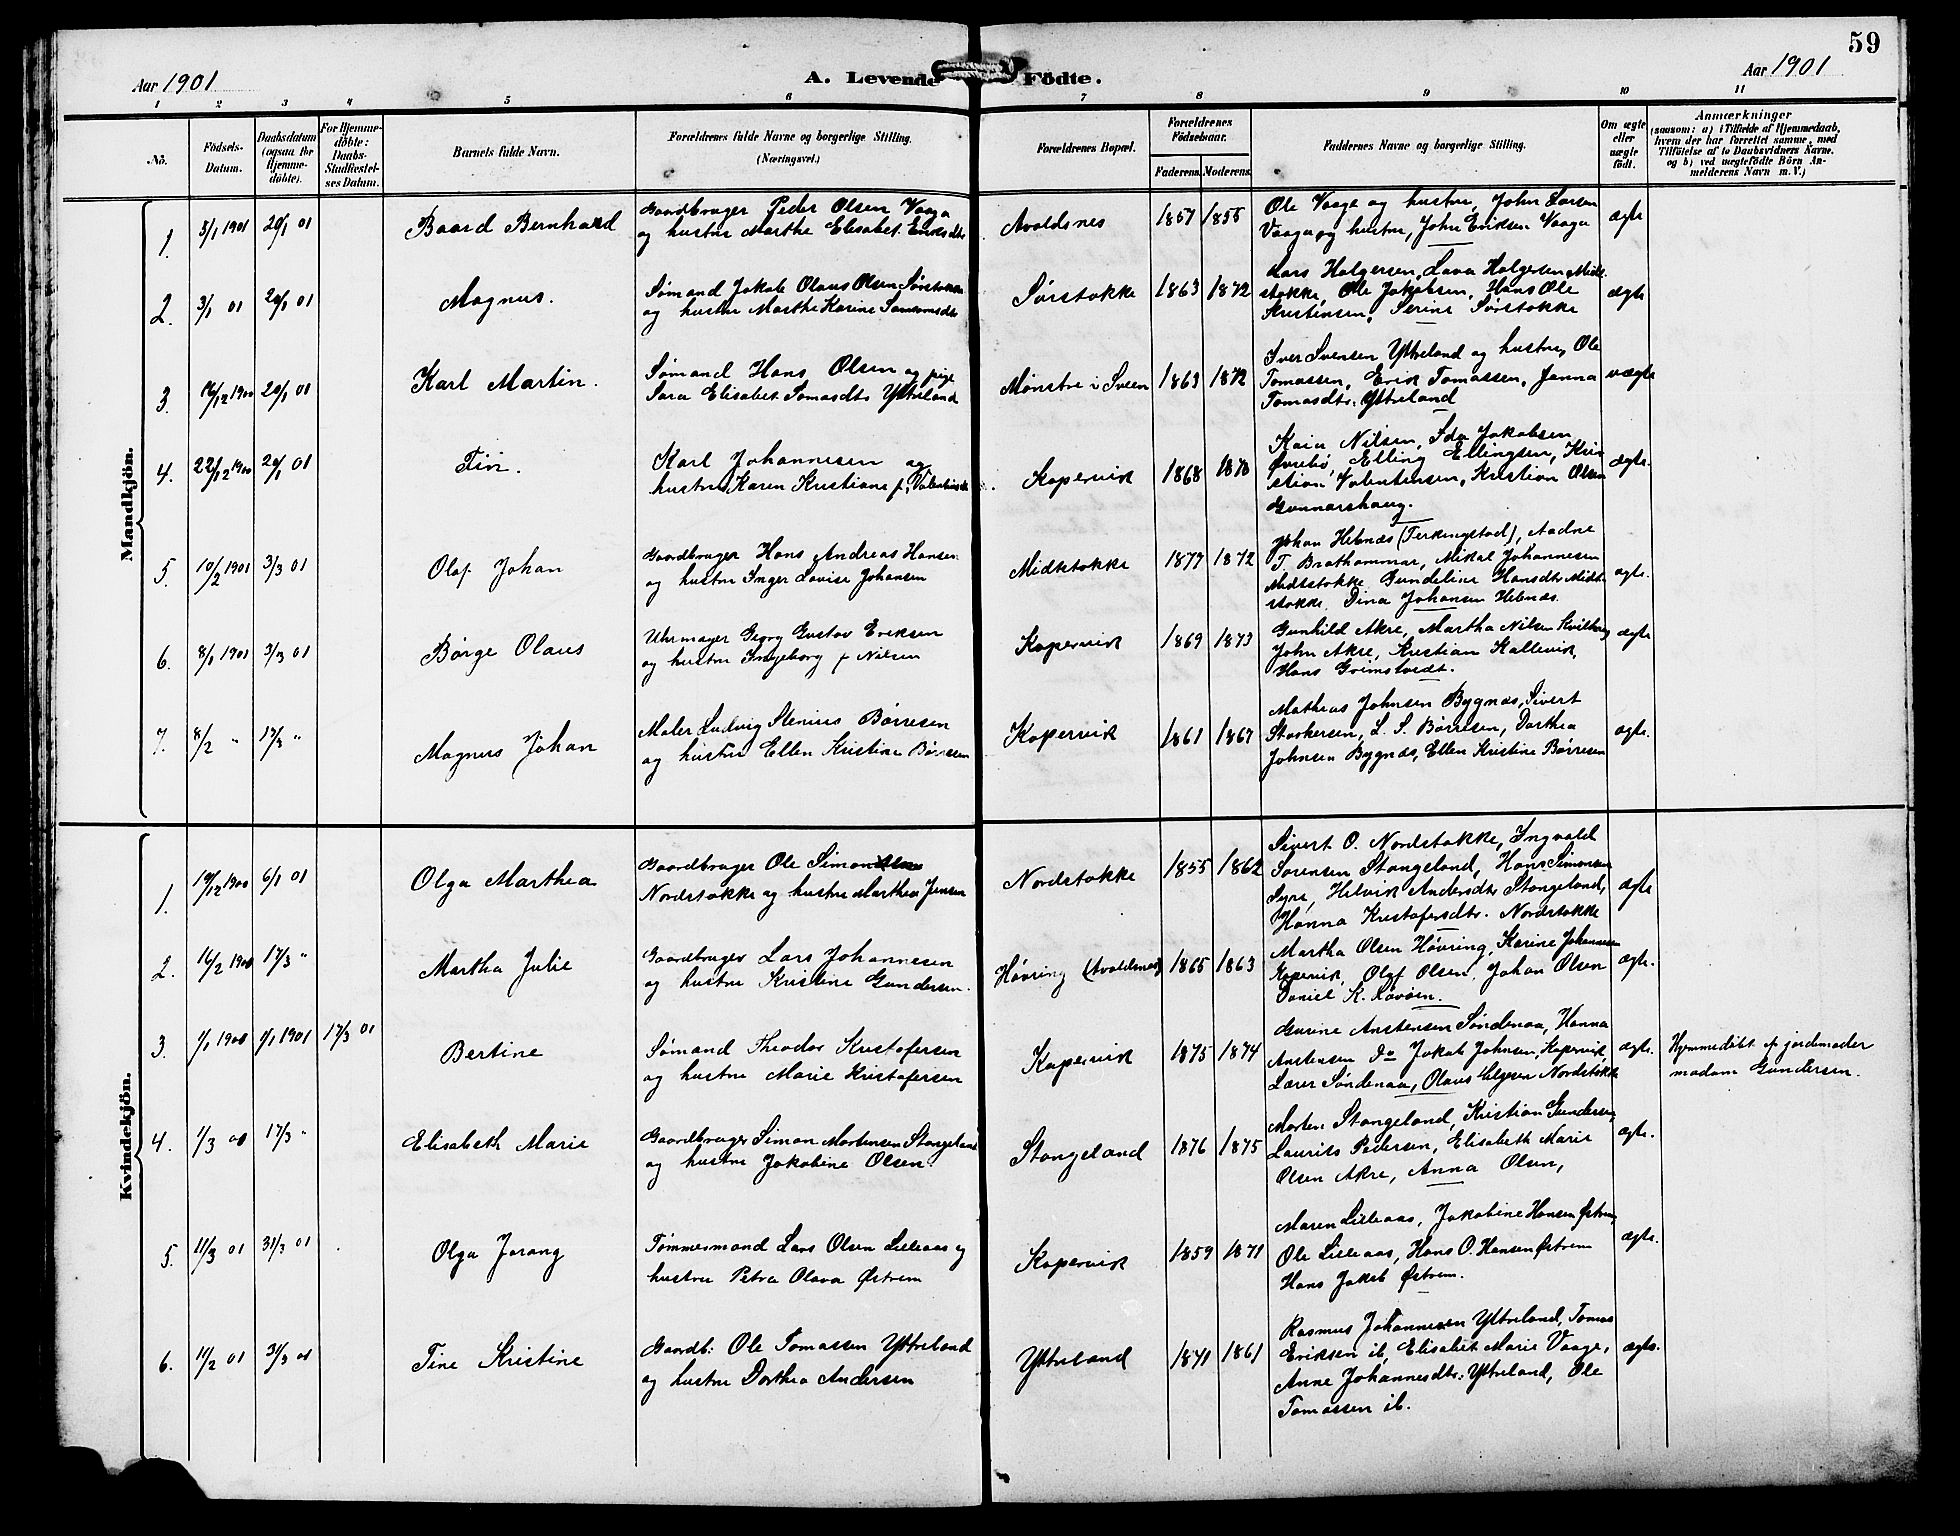 59
Aar 1901
A. Levende Födte.
Aar 1901
1 2 3 4 5 6 7 8 9 10 11
No.
Födsels-Datum.
Daabsdatum (ogsaa for Hjemmedöbte).
For Hjemmedöbte: Daabs-Stadfæstelses Datum.
Barnets fulde Navn.
Forældrenes fulde Navne og borgerlige Stilling.
(Næringsvei.)
Forældrenes Bopæl.
Forældrenes Födselsaar.
Faderens. Moderens.
Faddernes Navne og borgerlige Stilling.
Om ægte eller uægte födt.
Anmærkninger
(saasom: a) i Tilfælde af Hjemmedaab,
hvem der har forrettet samme, med
Tilföielse af to Daabsvidners Navne.
og b) ved uægtefödte Börn Anmelderens Navn m. V.)
Mandkjön.
1. 5/1 1901 20/1 01 Baard Bernhard
Gaardbruger Peder Olsen Vaaga
og hustru Marthe Elisabet Eriksdtr
Avaldsnes 1857 1855
Ole Vaage og hustru, John Larsen
Vaaga og hustru, John Eriksen Vaaga
ægte
2. 3/1 01 20/1 01 Magnus.
Sømand Jakob Olaus Olsen Sørstokke
og hustru Marthe Karine
Sørstokke 1863 1872
Lars Holgersen, Lava Holgersen Midtstokke, Ole Jakobsen, Hans Ole
Kristensen, Serine Sørstokke
ægte
3. 16/12 1900 20/1 01 Karl Martin.
Sømand Hans Olsen og pige
Sara Elisabet Tomasdtr Ytreland
Mønstre i Sveen 1863 1872
Iver Svensen Ytreland og hustru, Ole
Tomassen, Erik Tomassen, Janna
Tomasdtr. Ytreland
uægte
4. 22/12 1900 20/1 01
Karl Johannesen og
hustru Karen Kristiane f.
Kopervik 1868 1870
Nilsen, Ida Jakobsen
Øvrebø, Elling Ellingsen, Kristian Valentensen, Kristian Olsen
Gunnarshaug.
ægte.
5. 10/2 1901 3/3 01 Olaf Johan
Gaardbruger Hans Andreas Hansen
og hustru Inger Lovise Johansen
Midtstokke 1877 1872
Johan Hebnæs (Ferkingstad), Aadne
T. Brathammar, Mikal Johannesen
Midtstokke Gundeline Hansdtr Midtstokke. Dina Johansen Hebnæs.
ægte.
6. 8/1 1901 3/3 01 Børge Olaus
Uhrmager Georg Gustav Eriksen
og hustru Ingeborg f Nilsen
Kopervik 1869 1873
Gunhild Akre, Martha Nilsen
John Akre, Kristian Kallevik,
Hans Grimstvedt.
ægte
7. 8/2 " 17/3 " Magnus Johan
Maler Ludvig Stenius Børresen
og hustru Ellen Kristine Børresen
Kopervik 1861 1867
Mathias Johnsen Bygnæs, Sivert
Storkersen, L. S. Børresen, Dorthea
Johnsen Bygnæs, Ellen Kristine Børresen
ægte.
Kvindekjön.
1. 19/12 1900 6/1 01 Olga Marthea
Gaardbruger Ole Simonsen
Nordstokke og hustru Marthea Jensen
Nordstokke 1855 1862
Sivert O. Nordstokke, Ingvald
Sørensen Stangeland, Hans Simonsen
Syre, Helvik Andersdtr Stangeland,
Hanna Kristofersdtr. Nordstokke
ægte
2. 16/2 1900 17/3 " Martha Julie
Gaardbruger Lars Johannesen
og hustru Kristine Gundersen.
Høvring (Avaldsnes) 1865 1863
Martha Olsen Høvring, Karine Johannesen
Kopervik, Olaf Olsen, Johan Olsen
Daniel K. Røvøen.
ægte.
3. 1/1 1900 1/1 1901 17/3 01 Bertine
Sømand Theodor Kristofersen
og hustru Marie Kristofersen
Kopervik 1875 1874
Gurine Anstensen Søndenaa, Hanna
Anstensen Do Jakob Johnsen, Kopervik,
Søndenaa, Olaus Helgesen Nordstokke
ægte.
Hjemmedøbt af jordemoder
madam Gundersen.
4. 1/3 00 17/3 " Elisabeth Marie
Gaardbruger Simon Mortensen Stangeland
og hustru Jakobine Olsen.
Stangeland 1876 1875
Morten Stangeland, Kristian Gundersen,
Laurits Pedersen, Elisabeth Marie
Olsen Akre, Anna Olsen,
ægte.
5. 11/3 01 31/3 01 Olga Jorang
Tømmermand Lars Olsen Lilleaas og
hustru Petra Olava Østrem
Kopervik 1859 1871
Maren Lilleaas, Jakobine Hansen Østrem,
Ole Lilleaas, Hans O. Hansen Østrem
Hans Jakob Østrem.
ægte.
6. 11/2 01 31/3 01 Tine Kristine
Gaardb: Ole Tomassen Ytreland
og hustru Dorthea Andersen
Ytreland 1841 1861
Rasmus Johannesen Ytreland, Tomas
Eriksen ib, Elisabet Marie Vaage,
Anne Johannesdtr. Ytreland, Ole
Tomassen ib.
ægte.